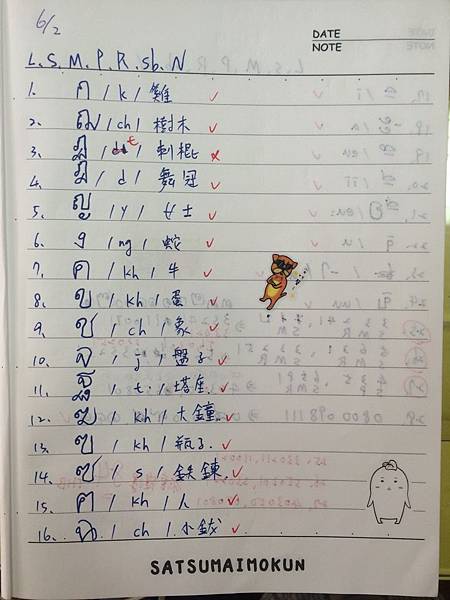 6/2
DATE
NOTE
L.S.M.P.R.Sb.N
1. ก / k / 雞 ✓
2. ฌ / ch / 樹木 ✓
3. ฏ / t / 刺棍 ✗
4. ฎ / d / 舞冠 ✓
5. ญ / y / 女士 ✓
6. ง / ng / 蛇 ✓
7. ค / kh / 牛 ✓
8. ข / kh / 蛋 ✓
9. ช / ch / 象 ✓
10. จ / j / 盤子 ✓
11. ฐ / t / 塔座 ✓
12. ฆ / kh / 大鐘 ✓
13. ฃ / kh / 瓶子 ✓
14. ซ / s / 鉄鍊 ✓
15. ฅ / kh / 人 ✓
16. ฉ / ch / 小鈸 ✓
SATSUMAIMOKUN